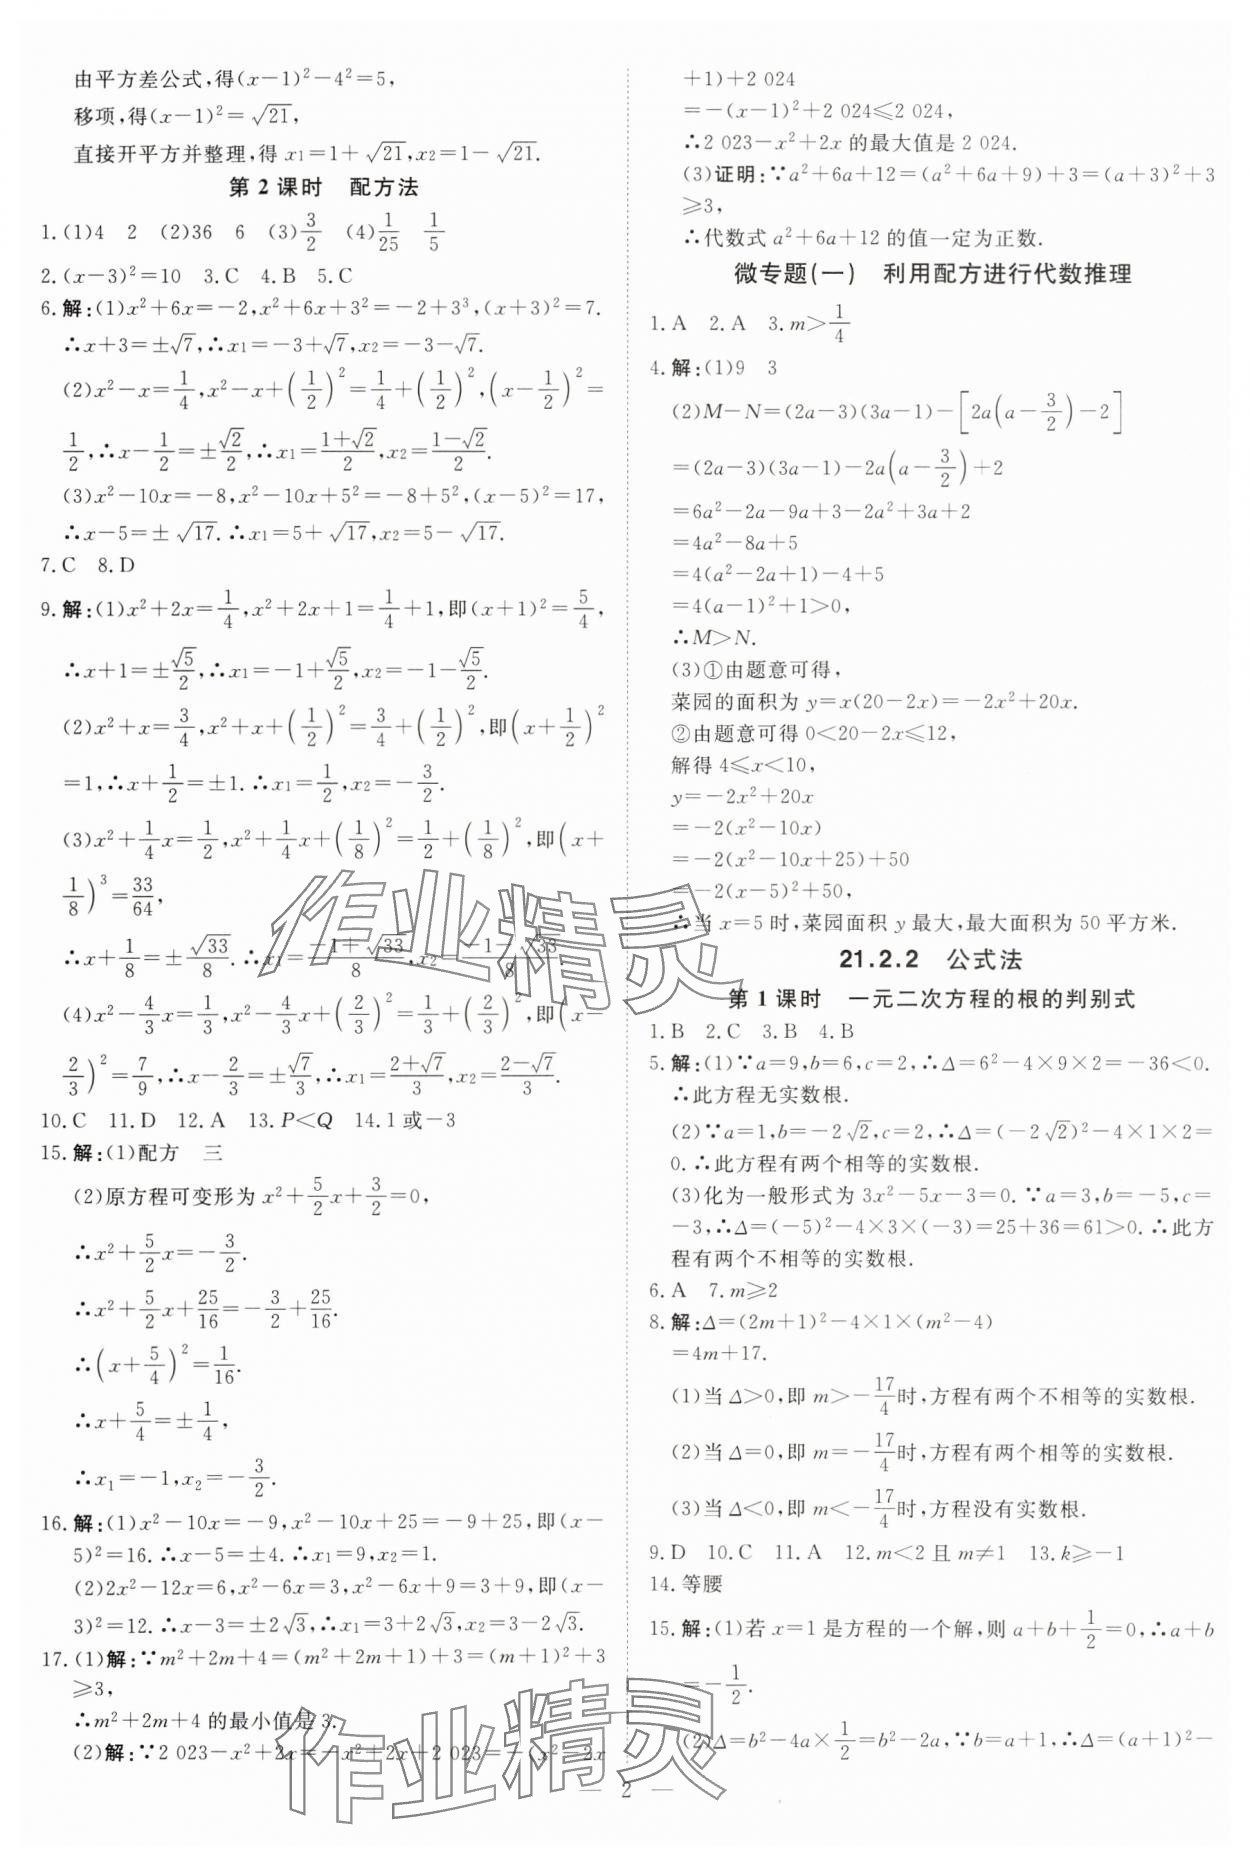 由平方差公式,得(x-1)²-4²=5,
移项,得(x-1)²=√21,
直接开平方并整理,得 x1=1+√21,x2=1-√21.
第 2 课时　配方法
1.(1)4　2　(2)36　6　(3)3/2　(4)1/25　1/5
2.(x-3)²=10　3.C　4.B　5.C
6.解:(1)x²+6x=-2,x²+6x+3²=-2+3³,(x+3)²=7.
∴x+3=±√7,∴x1=-3+√7,x2=-3-√7.
(2)x²-x=1/4,x²-x+(1/2)²=1/4+(1/2)²,(x-1/2)²=
1/2,∴x-1/2=±√2/2,∴x1=(1+√2)/2,x2=(1-√2)/2.
(3)x²-10x=-8,x²-10x+5²=-8+5²,(x-5)²=17,
∴x-5=±√17.∴x1=5+√17,x2=5-√17.
7.C　8.D
9.解:(1)x²+2x=1/4,x²+2x+1=1/4+1,即(x+1)²=5/4,
∴x+1=±√5/2,∴x1=-1+√5/2,x2=-1-√5/2.
(2)x²+x=3/4,x²+x+(1/2)²=3/4+(1/2)²,即(x+1/2)²
=1,∴x+1/2=±1.∴x1=1/2,x2=-3/2.
(3)x²+1/4x=1/2,x²+1/4x+(1/8)²=1/2+(1/8)²,即(x+
1/8)³=33/64,
∴x+1/8=±√33/8.∴x1=(-1+√33)/8,x2=(-1-√33)/8.
(4)x²-4/3x=1/3,x²-4/3x+(2/3)²=1/3+(2/3)²,即(x-
2/3)²=7/9,∴x-2/3=±√7/3,∴x1=(2+√7)/3,x2=(2-√7)/3.
10.C　11.D　12.A　13.P<Q　14.1或-3
15.解:(1)配方　三
(2)原方程可变形为 x²+5/2x+3/2=0,
∴x²+5/2x=-3/2.
∴x²+5/2x+25/16=-3/2+25/16.
∴(x+5/4)²=1/16.
∴x+5/4=±1/4,
∴x₁=-1,x₂=-3/2.
16.解:(1)x²-10x=-9,x²-10x+25=-9+25,即(x-
5)²=16.∴x-5=±4.∴x1=9,x2=1.
(2)2x²-12x=6,x²-6x=3,x²-6x+9=3+9,即(x-
3)²=12.∴x-3=±2√3,∴x1=3+2√3,x2=3-2√3.
17.(1)解:∵m²+2m+4=(m²+2m+1)+3=(m+1)²+3
≥3,
∴m²+2m+4 的最小值是 3.
(2)解:∵2 023-x²+2x=-x²+2x+2 023=-(x²-2x
+1)+2 024
=-(x-1)²+2 024≤2 024,
∴2 023-x²+2x 的最大值是 2 024.
(3)证明:∵a²+6a+12=(a²+6a+9)+3=(a+3)²+3
≥3,
∴代数式 a²+6a+12 的值一定为正数.
微专题(一)　利用配方进行代数推理
1.A　2.A　3.m>1/4
4.解:(1)9　3
(2)M-N=(2a-3)(3a-1)-[2a(a-3/2)-2]
=(2a-3)(3a-1)-2a(a-3/2)+2
=6a²-2a-9a+3-2a²+3a+2
=4a²-8a+5
=4(a²-2a+1)-4+5
=4(a-1)²+1>0,
∴M>N.
(3)①由题意可得,
菜园的面积为 y=x(20-2x)=-2x²+20x.
②由题意可得 0<20-2x≤12,
解得 4≤x<10,
y=-2x²+20x
=-2(x²-10x)
=-2(x²-10x+25)+50
=-2(x-5)²+50,
∴当 x=5 时,菜园面积 y 最大,最大面积为 50 平方米.
21.2.2　公式法
第 1 课时　一元二次方程的根的判别式
1.B　2.C　3.B　4.B
5.解:(1)∵a=9,b=6,c=2,∴Δ=6²-4×9×2=-36<0.
∴此方程无实数根.
(2)∵a=1,b=-2√2,c=2,∴Δ=(-2√2)²-4×1×2=
0.∴此方程有两个相等的实数根.
(3)化为一般形式为 3x²-5x-3=0.∵a=3,b=-5,c=
-3,∴Δ=(-5)²-4×3×(-3)=25+36=61>0.∴此方
程有两个不相等的实数根.
6.A　7.m≥2
8.解:Δ=(2m+1)²-4×1×(m²-4)
=4m+17.
(1)当 Δ>0,即 m>-17/4时,方程有两个不相等的实数根.
(2)当 Δ=0,即 m=-17/4时,方程有两个相等的实数根.
(3)当 Δ<0,即 m<-17/4时,方程没有实数根.
9.D　10.C　11.A　12.m<2 且 m≠1　13.k≥-1
14.等腰
15.解:(1)若 x=1 是方程的一个解,则 a+b+1/2=0,∴a+b
=-1/2.
(2)Δ=b²-4a×1/2=b²-2a,∵b=a+1,∴Δ=(a+1)²-
— 2 —
作业精灵
作业精灵